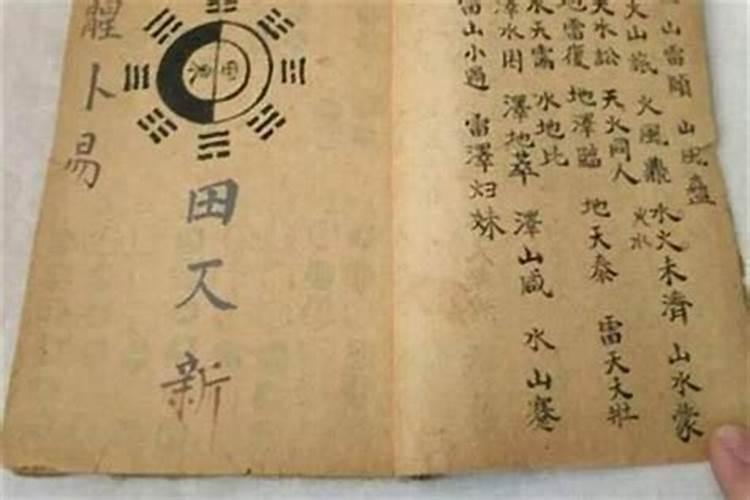 山風蠱
山雷頤
水火未濟
山水蒙
火山旅
火風鼎
火水
天水訟
天火同人
地雷復
地澤臨
地天泰
雷天大壯
水天需
水地比
澤水困
澤地萃
澤山咸
水山蹇
雷山小過
雷澤归妹
田
新
卜易